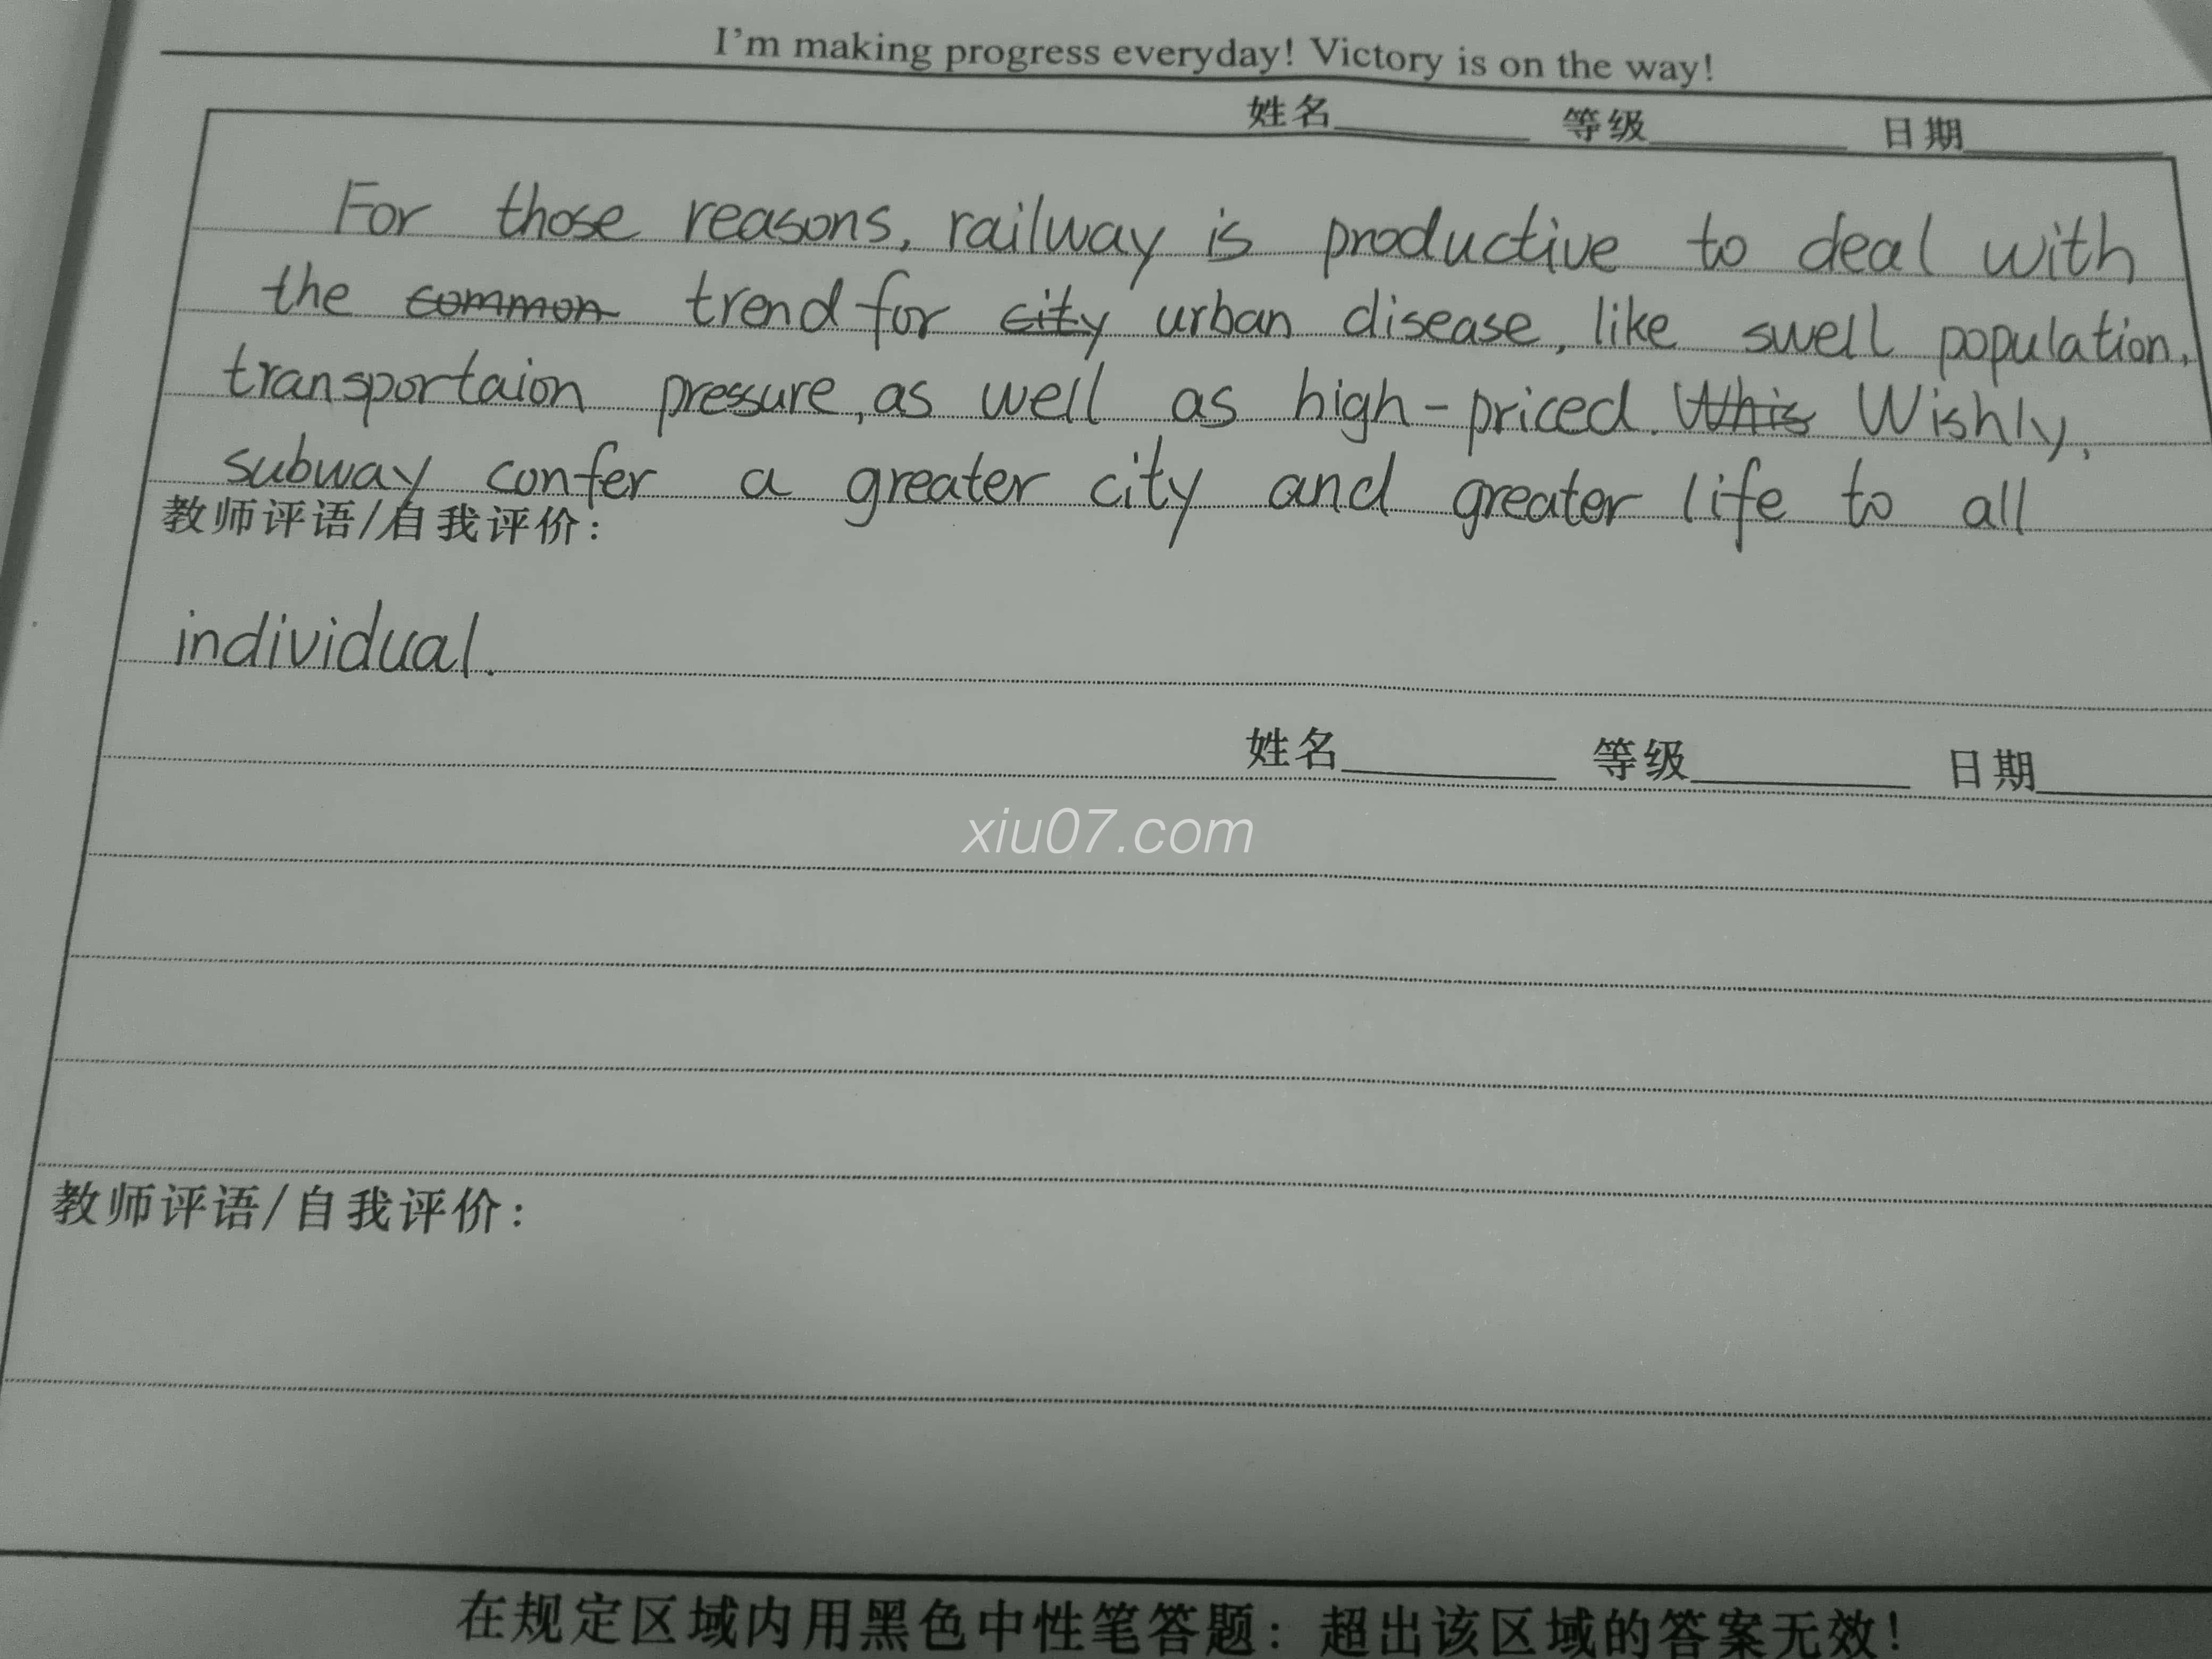 I'm making progress everyday! Victory is on the way!
姓名 等级 日期
For those reasons, railway is productive to deal with
the common trend for city urban disease, like swell population,
transportaion pressure, as well as high-priced. Whis Wishly,
subway confer a greater city and greater life to all
教师评语/自我评价:
individual.
姓名 等级 日期
xiu07.com
教师评语/自我评价:
在规定区域内用黑色中性笔答题: 超出该区域的答案无效!